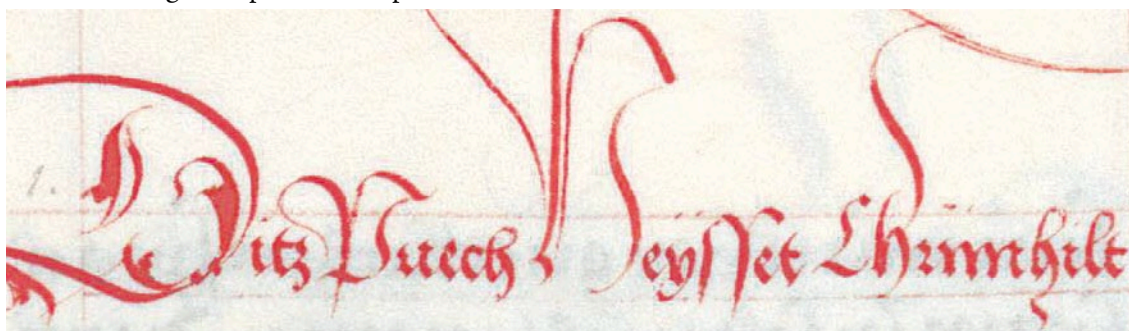 1. Ditz Puech Heÿsset Chrimhilt